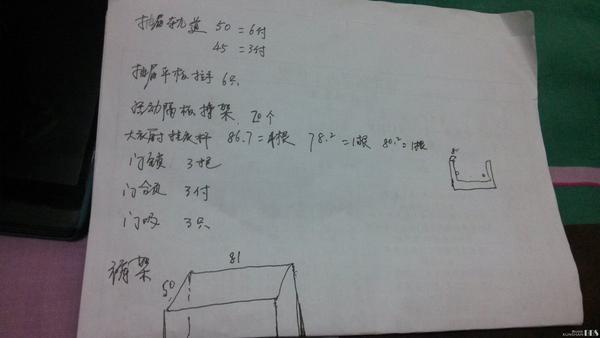 抽屉轨道 50=6付
45=3付
抽屉平板拉手 6只
活动隔板搭架 20个
大衣厨挂衣杆 86.7=4根 78.²=1根 80.²=1根
门锁 3把
门合页 3付
门吸 3只
裤架
81
50
KUNSHAN BBS